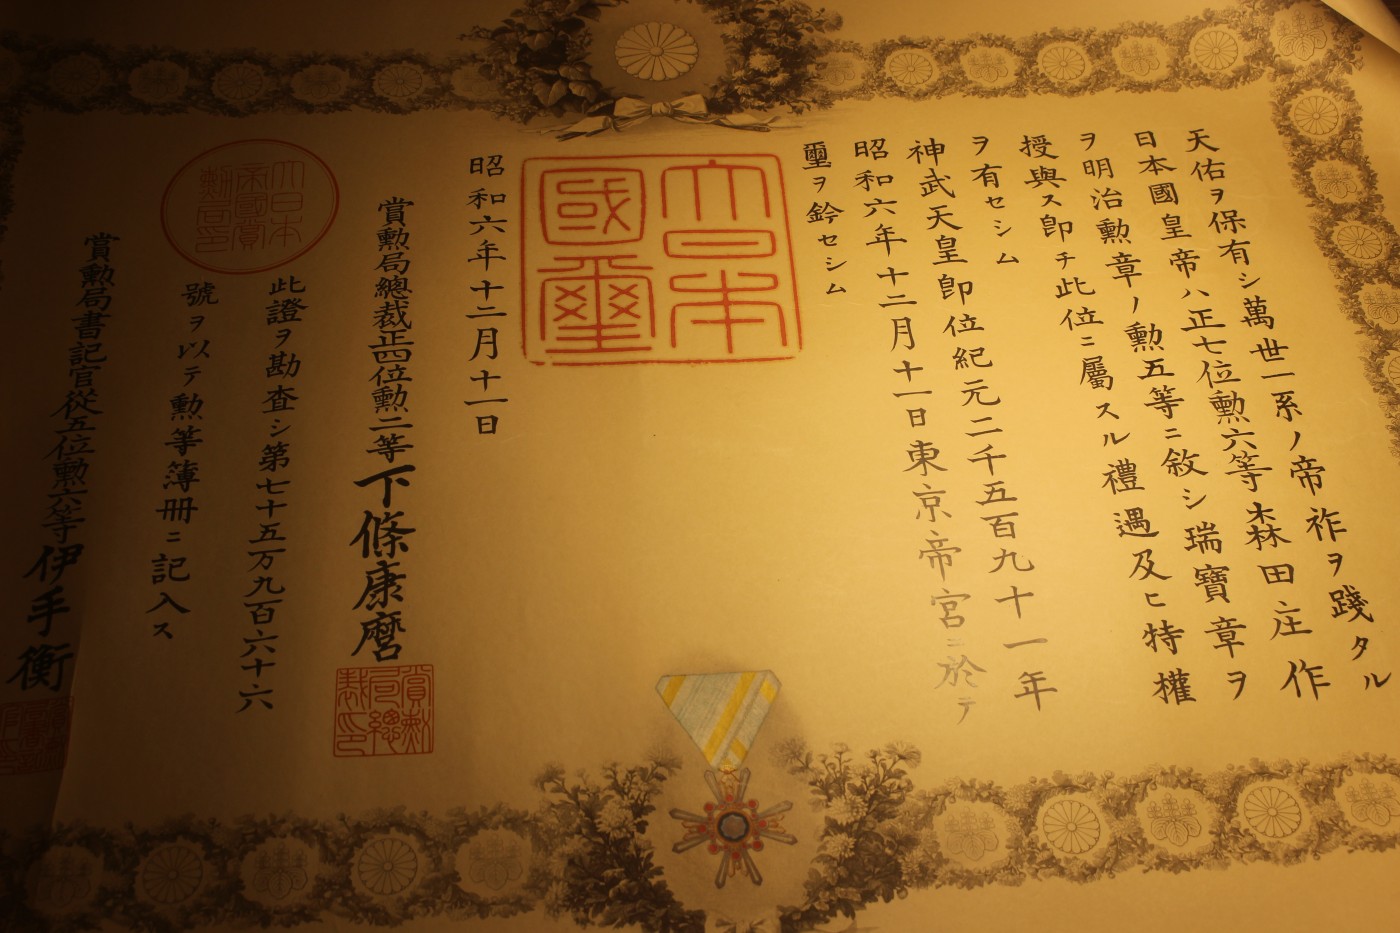 天佑ヲ保有シ萬世一系ノ帝祚ヲ踐タル
日本國皇帝ハ正七位勲六等森田庄作
ヲ明治勲章ノ勲五等ニ敘シ瑞寶章ヲ
授與ス即チ此位ニ屬スル禮遇及ヒ特權
ヲ有セシム
神武天皇即位紀元二千五百九十一年
昭和六年十二月十一日東京帝宮ニ於テ
璽ヲ鈐セシム
大日本
國璽
昭和六年十二月十一日
賞勲局總裁正四位勲二等下條康麿
賞勲
局總
裁印
此證ヲ勘査シ第七十五万九百六十六
號ヲ以テ勲等簿册ニ記入ス
大日本
帝國賞
勲局印
賞勲局書記官從五位勲六等伊手衡